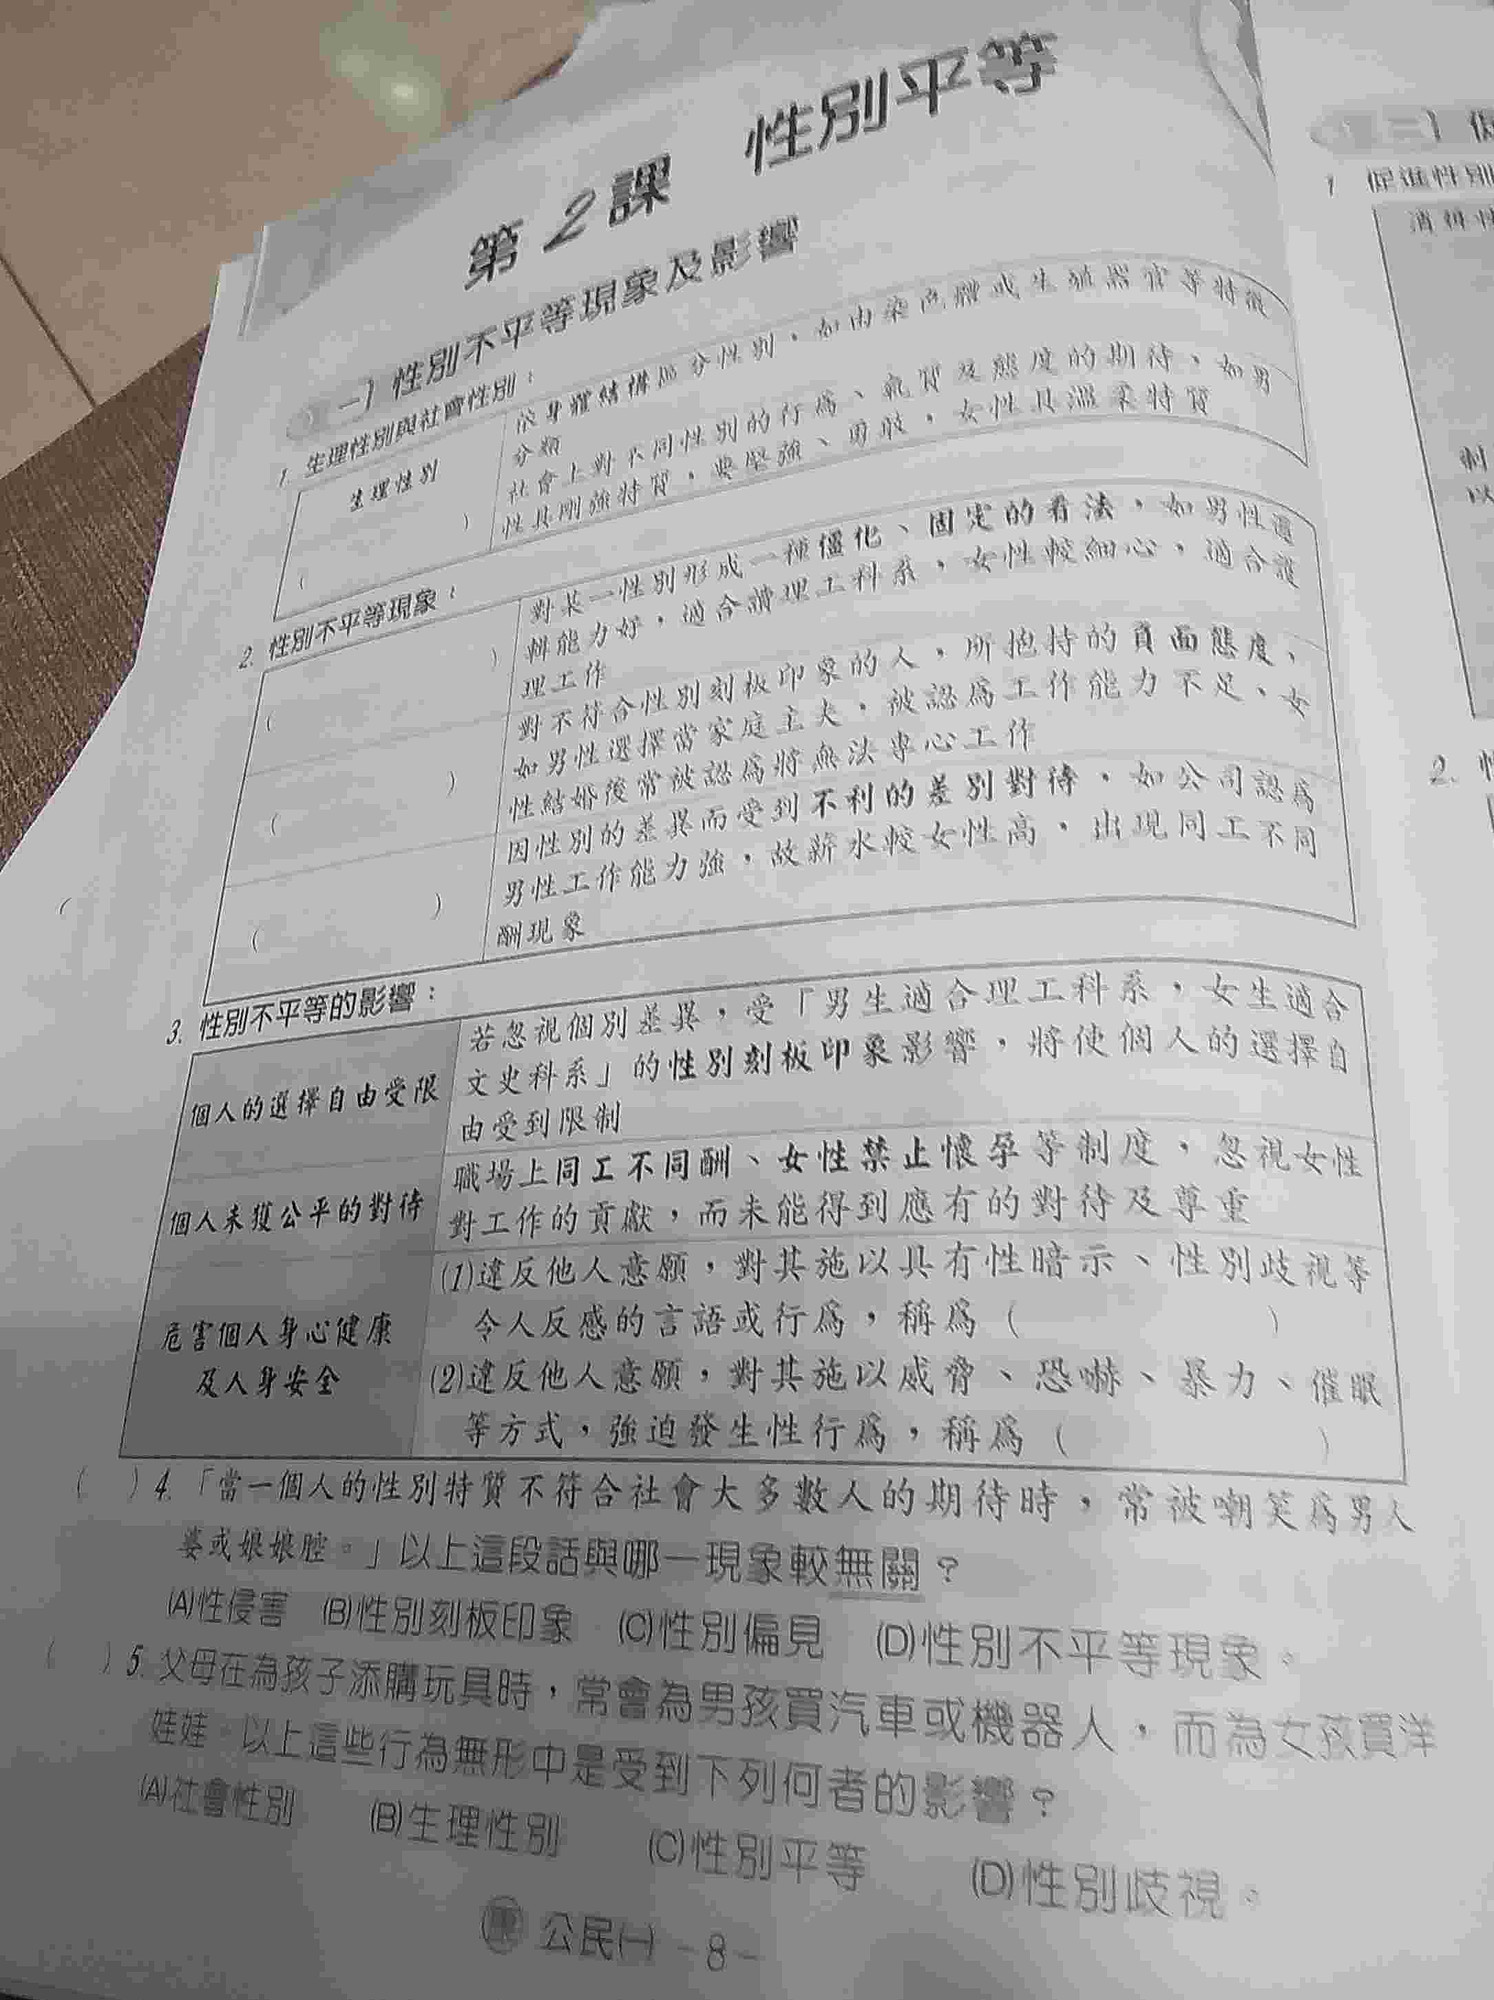 第2課 性別平等
(一) 性別不平等現象及影響
1. 生理性別與社會性別：
生理性別
依身體結構區分性別，如由染色體或生殖器官等特徵
分類
( )
社會上對不同性別的行為、氣質及態度的期待，如男
性具剛強特質，要堅強、勇敢，女性具溫柔特質
2. 性別不平等現象：
( )
對某一性別形成一種僵化、固定的看法，如男性邏
輯能力好，適合讀理工科系，女性較細心，適合護
理工作
( )
對不符合性別刻板印象的人，所抱持的負面態度，
如男性選擇當家庭主夫，被認為工作能力不足、女
性結婚後常被認為將無法專心工作
( )
因性別的差異而受到不利的差別對待，如公司認為
男性工作能力強，故薪水較女性高，出現同工不同
酬現象
3. 性別不平等的影響：
個人的選擇自由受限
若忽視個別差異，受「男生適合理工科系，女生適合
文史科系」的性別刻板印象影響，將使個人的選擇自
由受到限制
個人未獲公平的對待
職場上同工不同酬、女性禁止懷孕等制度，忽視女性
對工作的貢獻，而未能得到應有的對待及尊重
危害個人身心健康
及人身安全
(1)違反他人意願，對其施以具有性暗示、性別歧視等
令人反感的言語或行為，稱為( )
(2)違反他人意願，對其施以威脅、恐嚇、暴力、催眠
等方式，強迫發生性行為，稱為( )
( )4.「當一個人的性別特質不符合社會大多數人的期待時，常被嘲笑為男人
婆或娘娘腔。」以上這段話與哪一現象較無關？
(A)性侵害 (B)性別刻板印象 (C)性別偏見 (D)性別不平等現象。
( )5. 父母在為孩子添購玩具時，常會為男孩買汽車或機器人，而為女孩買洋
娃娃。以上這些行為無形中是受到下列何者的影響？
(A)社會性別 (B)生理性別 (C)性別平等 (D)性別歧視。
康 公民(一) -8-
1 促進性別
2.